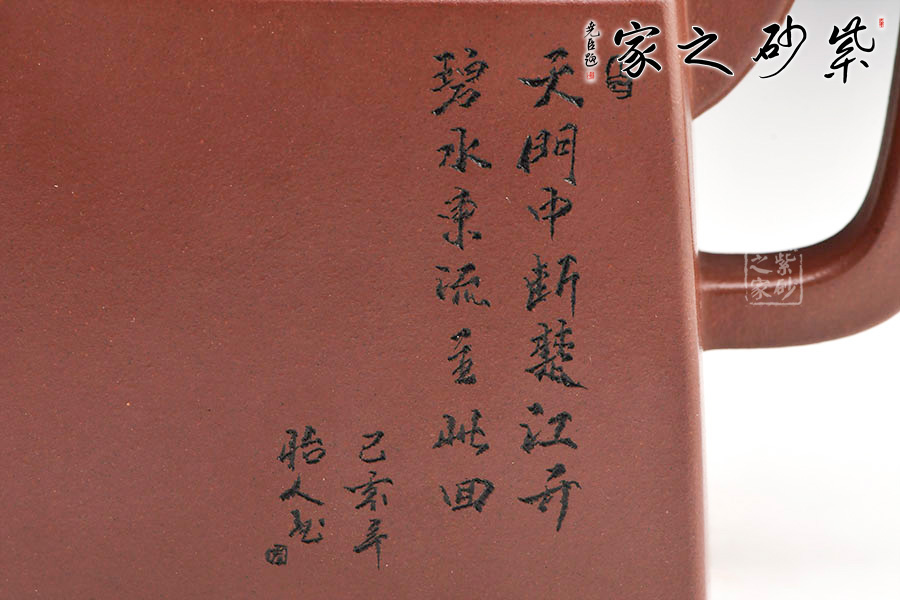 紫砂之家
天門中断楚江开
碧水東流至此回
己亥年
怡人书
紫砂之家